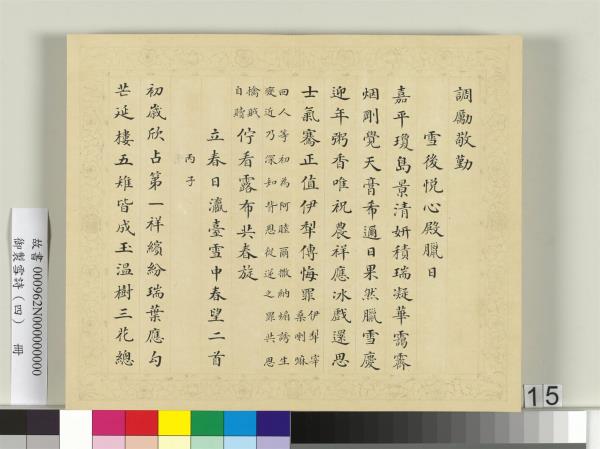 調勵敬勤
雪後悅心殿臘日
嘉平瓊島景清妍積瑞凝華靄霽
烟剛覺天膏希邇日果然臘雪慶
迎年粥香唯祝農祥應冰戲還思
士氣騫正值伊犁傳悔罪伊犁宰桑喇嘛
回人等初為阿睦爾撒納煽誘生
變近乃深知背恩從逆之罪共思
擒賊自贖佇看露布共春旋
立春日瀛臺雪中春望二首
丙子
初歲欣占第一祥繽紛瑞葉應勾
芒延樓五雉皆成玉温樹三花總
故書000962N000000000
御製雪詩(四) 冊
15